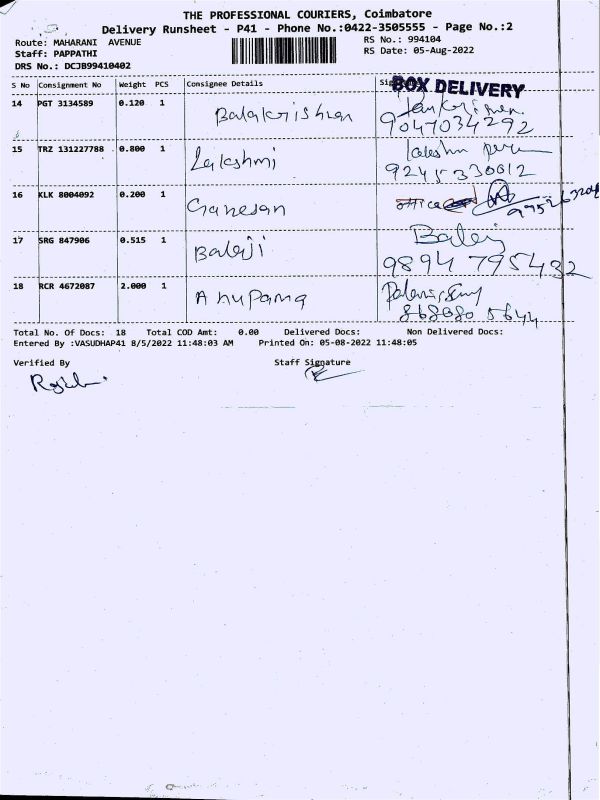 THE PROFESSIONAL COURIERS, Coimbatore
Delivery Runsheet - P41 - Phone No.:0422-3505555 - Page No.:2
Route: MAHARANI AVENUE RS No.: 994104
Staff: PAPPATHI RS Date: 05-Aug-2022
DRS No.: DCJB99410402
BOX DELIVERY
S No Consignment No Weight PCS Consignee Details
14 PGT 3134589 0.120 1 Balakrishnan
9047034292
15 TRZ 131227788 0.800 1 Lakshmi
9245330012
16 KLK 8004092 0.200 1 Ganesan office
17 SRG 847906 0.515 1 Balaji Balaj
9894795432
18 RCR 4672087 2.000 1 Anupama
Total No. Of Docs: 18 Total COD Amt: 0.00 Delivered Docs: Non Delivered Docs:
Entered By :VASUDHAP41 8/5/2022 11:48:03 AM Printed On: 05-08-2022 11:48:05
Verified By Staff Signature